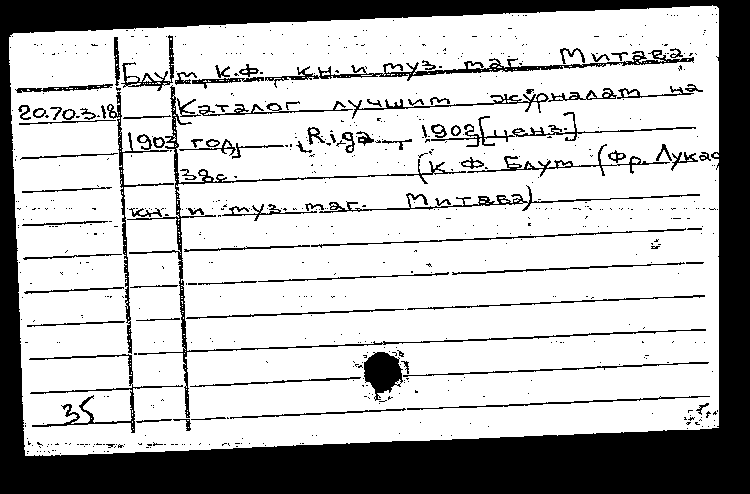 Блут, К.Ф. кн. и муз. маг. Митава.
20.70.3.18 Каталог лучших журналах на
1903 год. Riga, 1902 [ценз.]
38с. (К. Ф. Блут (Фр. Лукас
кн. и муз. маг. Митава)
35